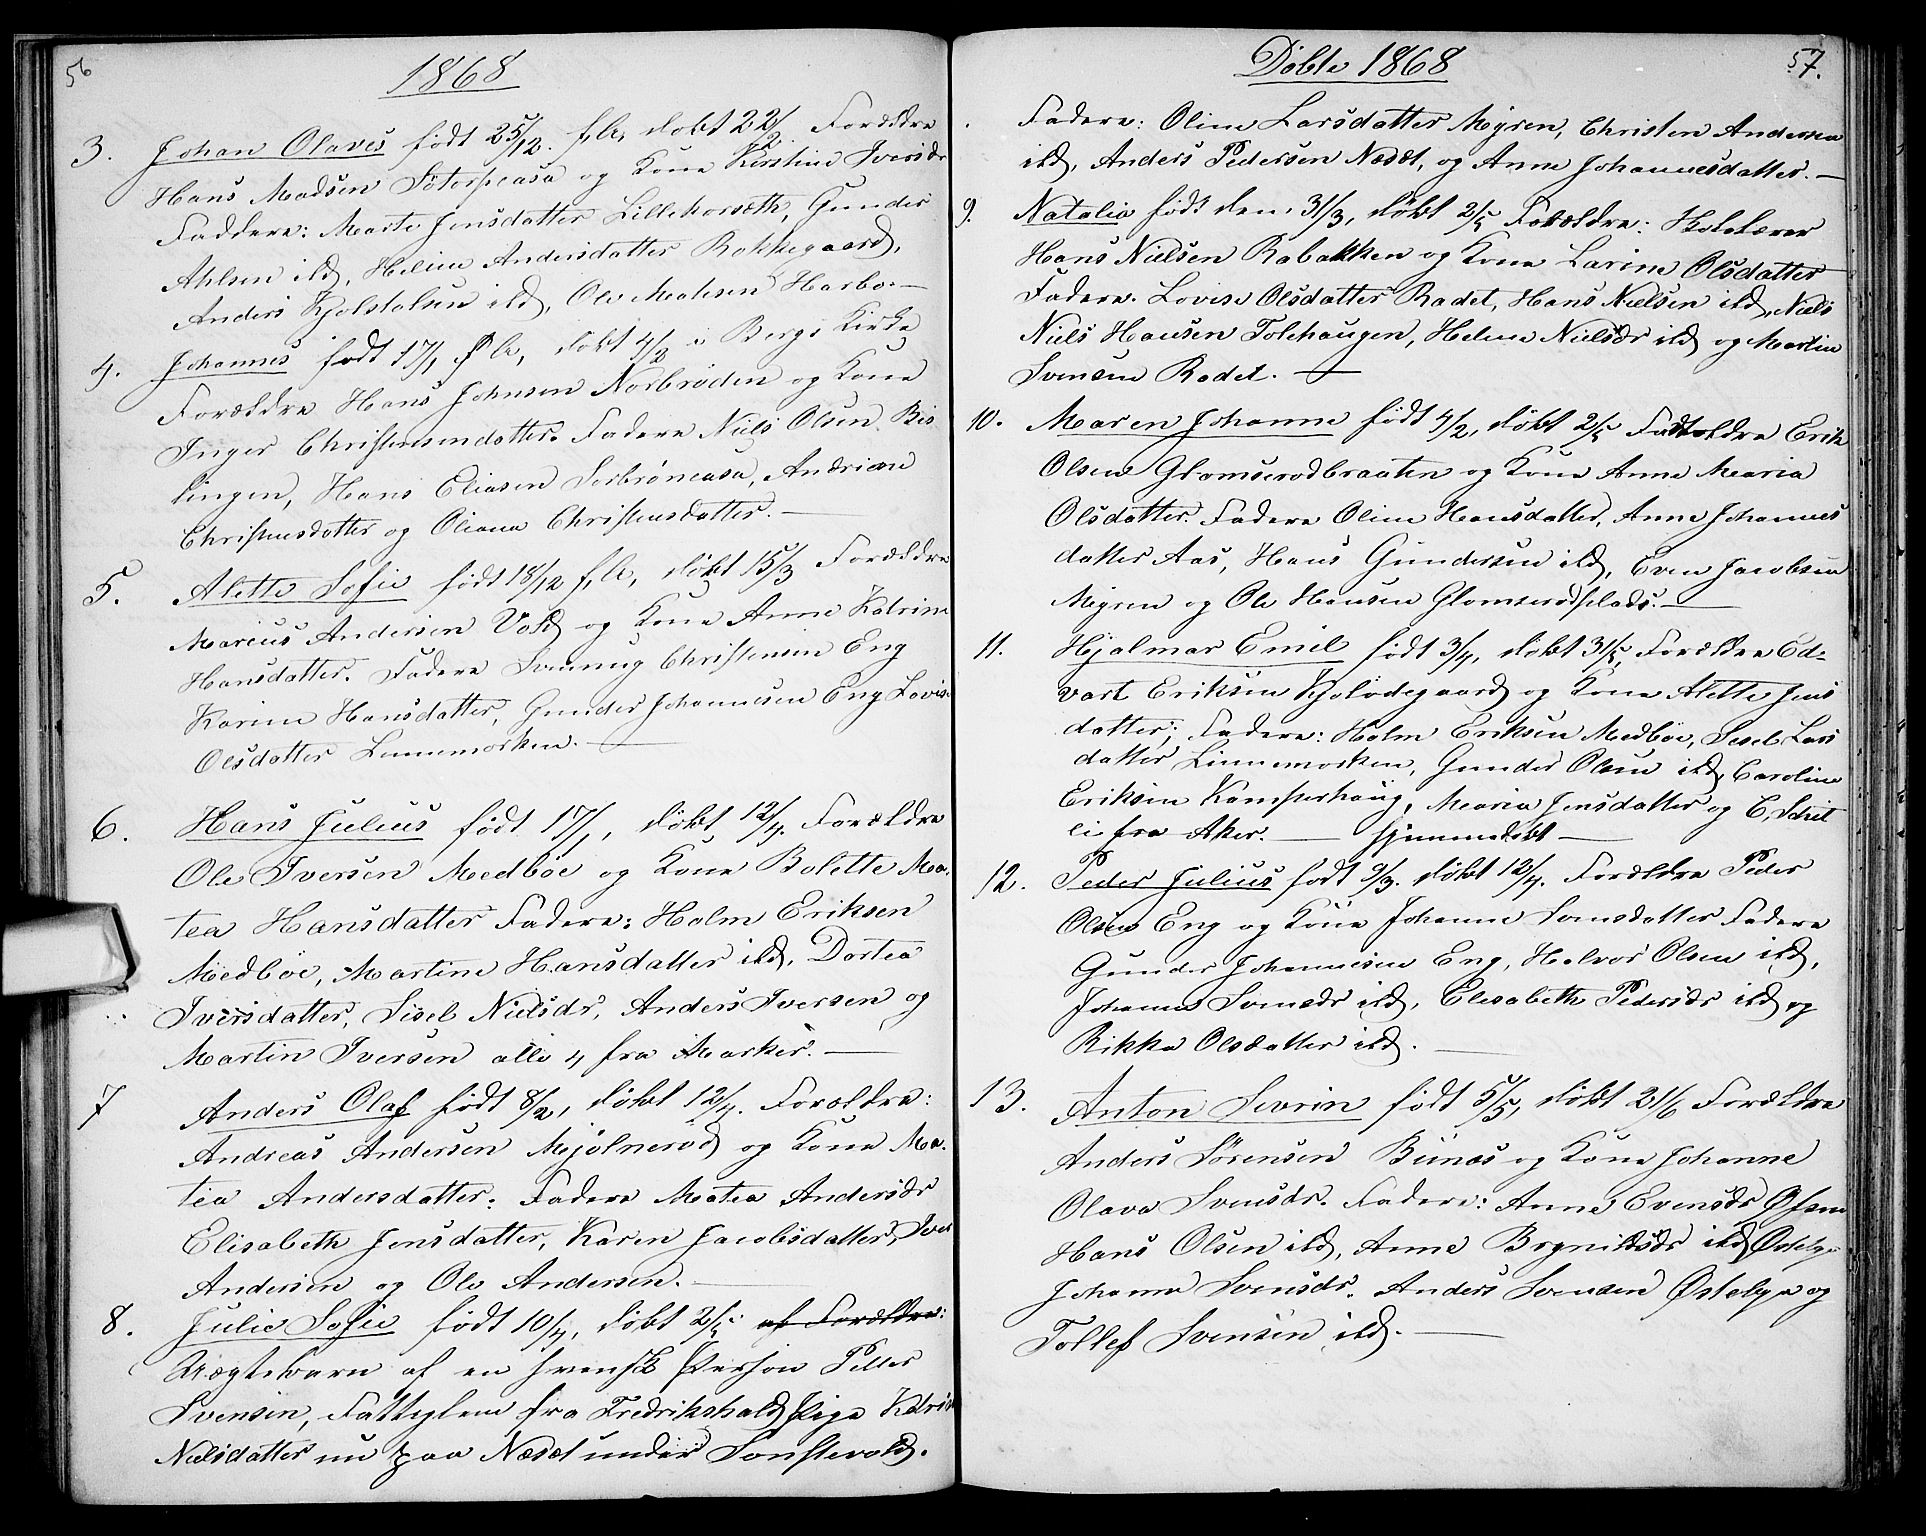 56
1868
3. Johan Olaves født 25/12 f. A. døbt 22/2. Forældre
Hans Madsen og Kone Kirstine Iversdr
Faddere: Marte Jensdatter Lillehorseth, Gunder
Ahlsen ibd, Heline Andersdatter Bakkegaard,
Anders Kjølstolsen ibd, Ole Madsen Harbo.—
4. Johannes født 17/1 døbt i Bergs Kirke
Forældre Hans Johnsen Norbrøden og Kone
Inger Christensendatter. Fadere Niels Olsen Bis
lingen, Hans Eliasen Andriane
Christensdatter og Oliana Christensdatter.—
5. Alette Sofie født 18/12 f. A., døbt 15/3 Forældre
Marius Andersen Vold og Kone Anne Katrine
Hansdatter. Fadere Svennug Christensen Eng
Karine Hansdatter, Gunder Johannesen Eng Lovise
Olsdatter Linnemorken.—
6. Hans Julius født 17/1, døbt 12/4. Forældre
Ole Iversen Medbøe og Kone Bolette Ma-
tea Hansdatter Fadere: Holm Eriksen
Medbøe, Martine Hansdatter ibd, Dortea
Iversdatter, Sisel Nielsdr, Anders Iversen og
Martin Iversen alle 4 fra Marker.—
7 Anders Olaf født 8/2, døbt 12/4. Forældre:
Andreas Andersen Mjølnerød og Kone Ma-
tea Andersdatter: Fadere Matea Andersdr
Elisabeth Jensdatter, Karen Jacobsdatter, Iver
Andersen og Ole Andersen.—
8. Julie Sofie født 10/4, døbt 2/5 af Forældre:
Uægtebarn af en svensk Person Petter
Svensen, Fattiglem fra Fredrikshald Pige Katrine
Nielsdatter nu paa Næset under Sonstevold.
Døbte 1868
57.
Fadere: Oline Larsdatter Myren, Christen Andersen
ibd, Anders Pedersen Næset, og Anne Johannesdatter.—
9. Natalia født den 31/3, døbt 2/5 Forældre: Skolelærer
Hans Nielsen Rabakken og Kone Larine Olsdatter
Fadere. Lovise Olsdatter Rødet, Hans Nielsen ibd, Niels
Niels Hansen Tolehaugen, Helene Nielsdr ibd og Martin
Svensen Rødet.—
10. Maren Johanne født 4/2, døbt 2/5 Forældre Erik
Olsen Glomserødbraaten og Kone Anne Maria
Olsdatter. Fadere Oline Hansdatter, Anne Johannes
datter Aas, Hans Gundersen ibd, Even Jacobsen
Myren og Ole Hansen Glomserødplads.—
11. Hjalmar Emil født 3/4, døbt 31/5, Forældre Ed-
vart Eriksen Kjolodegaard og Kone Alette Jens
datter; Fadere: Holm Eriksen Medbøe, Sesel Lars
datter Linnemorken, Gunder Olsen ibd, Caroline
Eriksen Kamperhaug, Maria Jensdatter og C.
fra Aker.— hjemmedøbt—
12. Peder Julius født 9/3. døbt 12/4. Forældre Peder
Olsen Eng og Kone Johanne Svensdatter Fadere
Gunder Johannesen Eng, Halvor Olsen ibd,
Johanne Svensdr ibd, Elisabeth Pedersdr ibd og
Rikka Olsdatter ibd.—
13. Anton Sevrin født 5/5, døbt 21/6 Forældre
Anders Sørensen Bunæs og Kone Johanne
Olava Svensdr. Fadere: Anne Evensdr
Hans Olsen ibd, Anne Brynildsdr ibd
Johanne Svensdr. Anders Svensen Østebye og
Tollef Svensen ibd.—